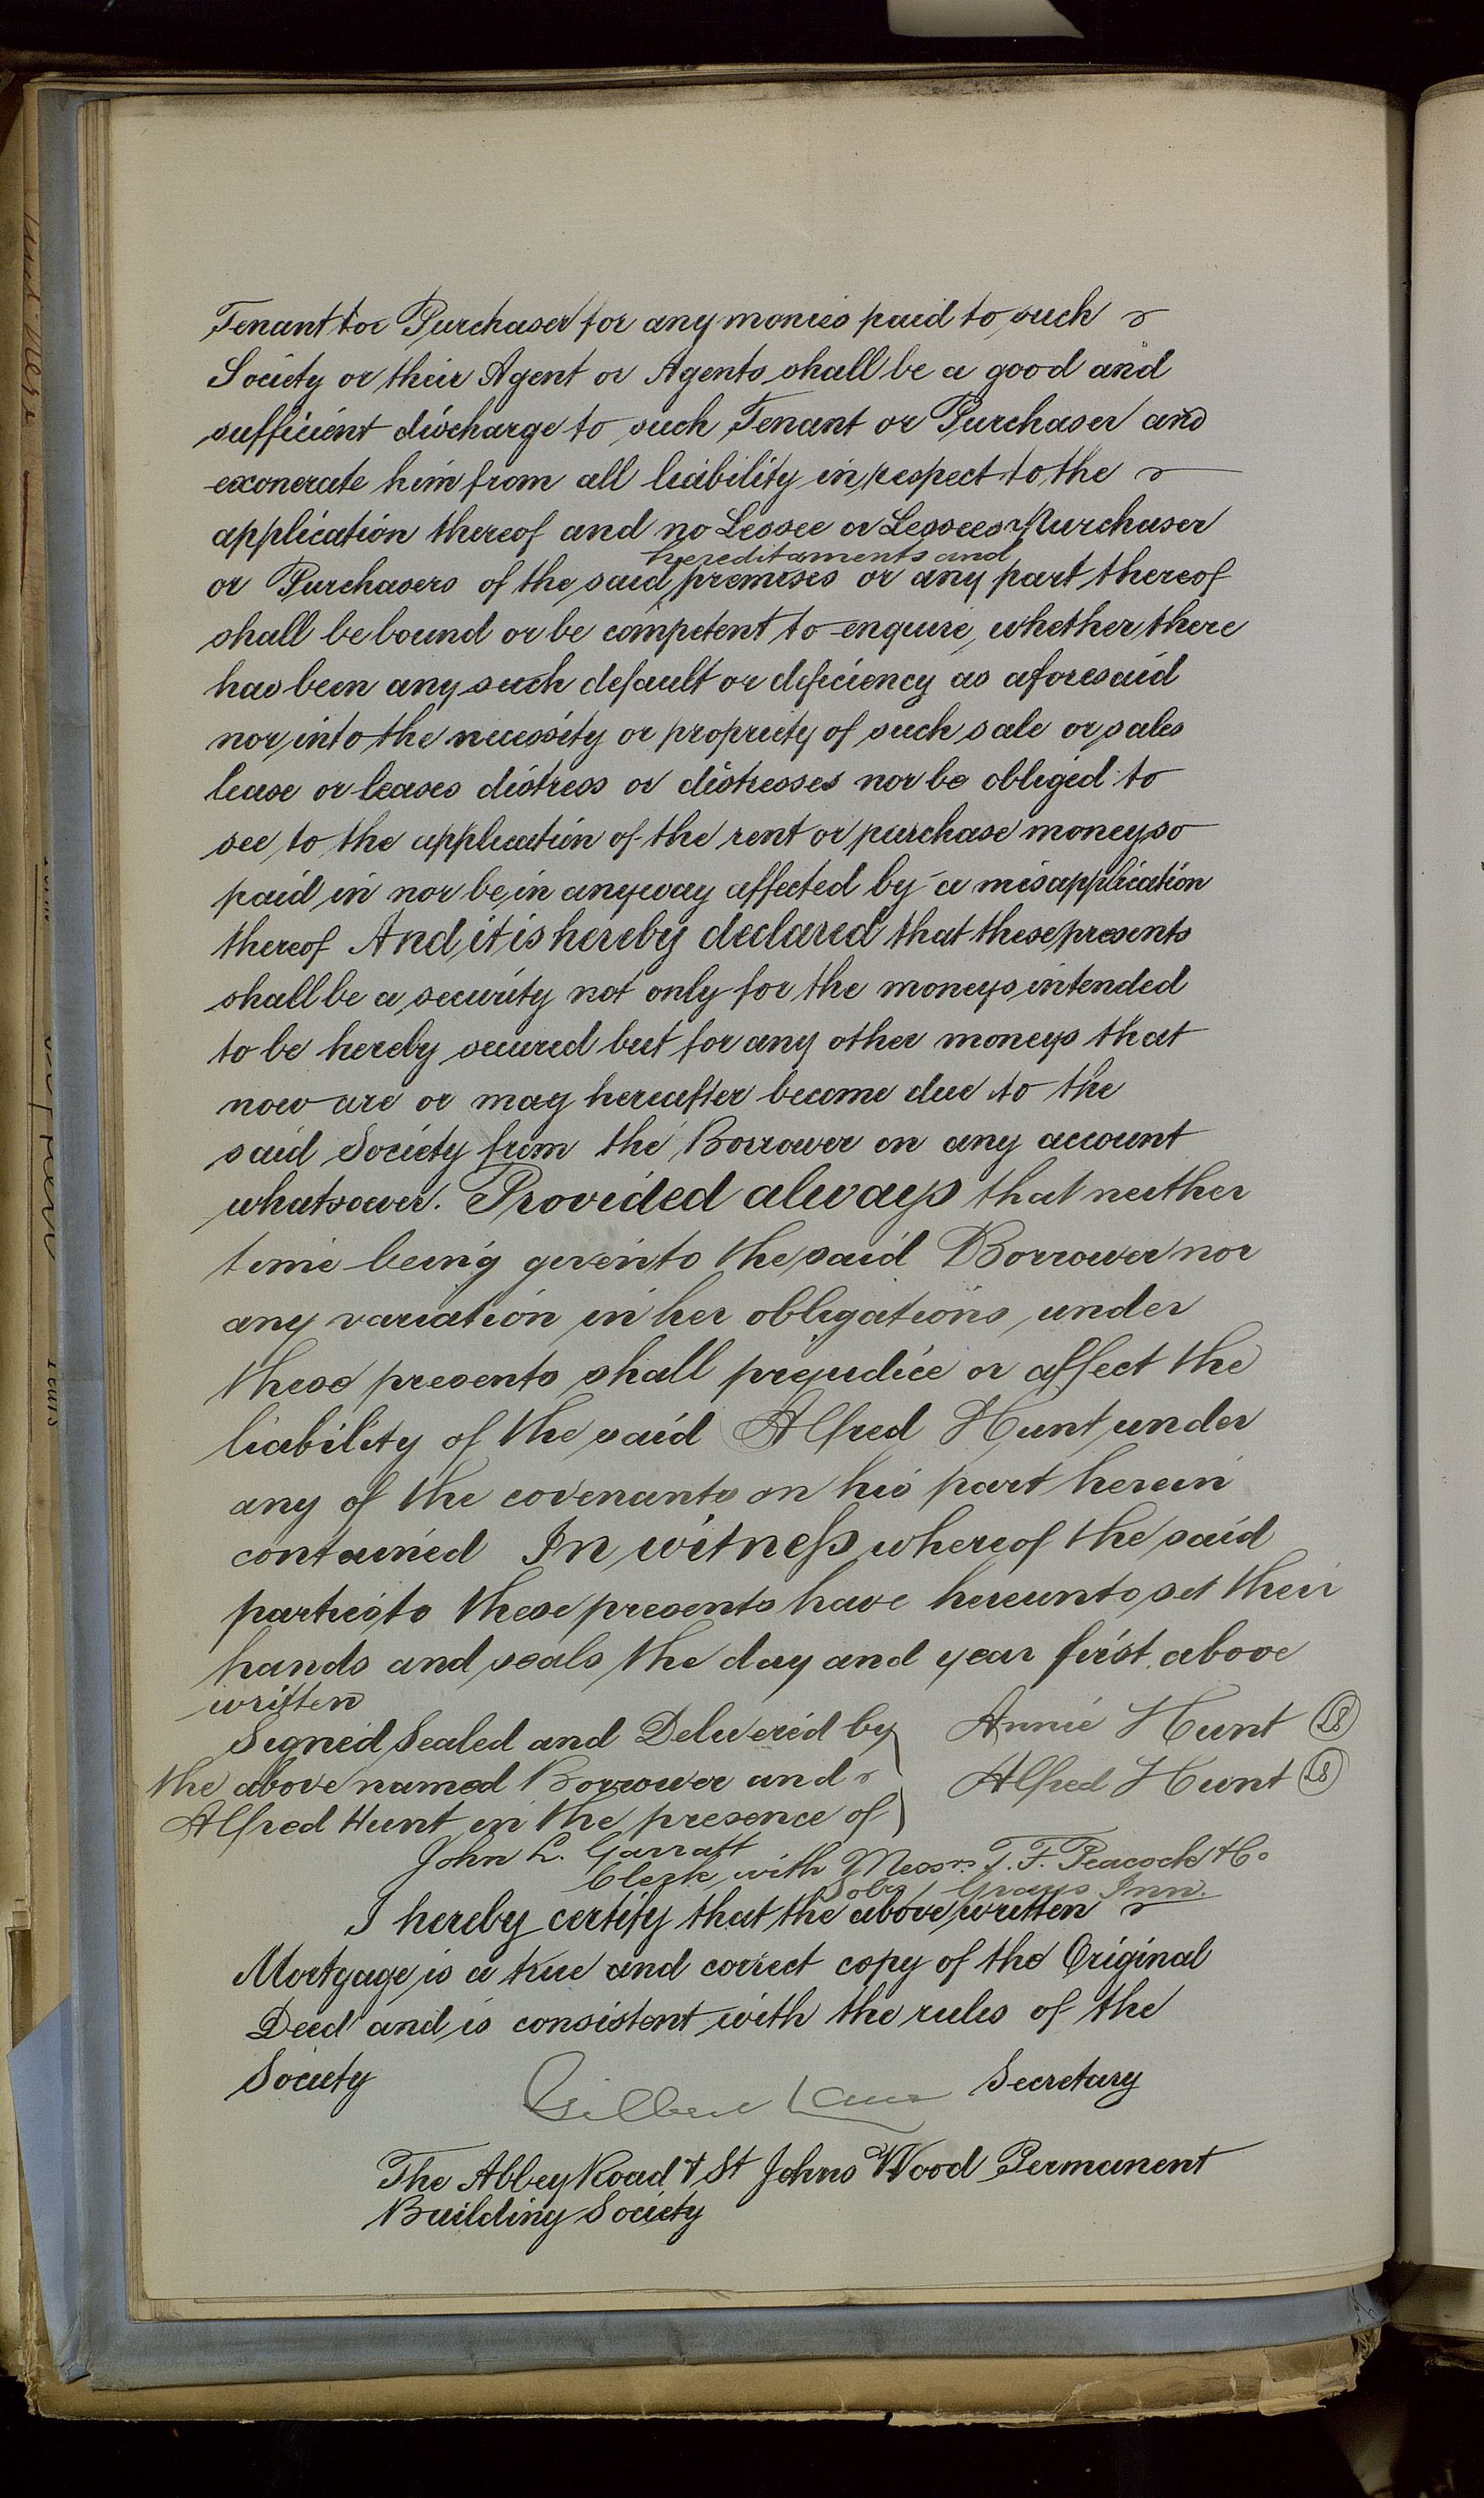 Tenant or Purchaser for any monies paid to such
Society or their Agent or Agents shall be a good and
sufficient discharge to such Tenant or Purchaser and
exonerate him from all liability in respect to the
application thereof and no Lessee or Lessees Purchaser
hereditaments and
or Purchasers of the said premises or any part thereof
shall be bound or be competent to enquire whether there
has been any such default or deficiency as aforesaid
nor into the necessity or propriety of such sale or sales
lease or leases distress or distresses nor be obliged to
see to the application of the rent or purchase moneys so
paid in nor be in anyway affected by a misapplication
thereof And it is hereby declared that these presents
shall be a security not only for the moneys intended
to be hereby secured but for any other moneys that
now are or may hereafter become due to the
said Society from the Borrower on any account
whatsoever. Provided always that neither
time being given to the said Borrower nor
any variation in her obligations under
these presents shall prejudice or affect the
liability of the said Alfred Hunt under
any of the covenants on his part herein
contained In witness whereof the said
parties to these presents have hereunto set their
hands and seals the day and year first above
written
Signed Sealed and Delivered by Annie Hunt LS
the above named Borrower and Alfred Hunt LS
Alfred Hunt in the presence of
John L. Garratt
Clerk with Messrs. T. F. Peacock & Co
Solrs, Grays Inn.
I hereby certify that the above written
Mortgage is a true and correct copy of the Original
Deed and is consistent with the rules of the
Society Secretary
The Abbey Road & St Johns Wood Permanent
Building Society